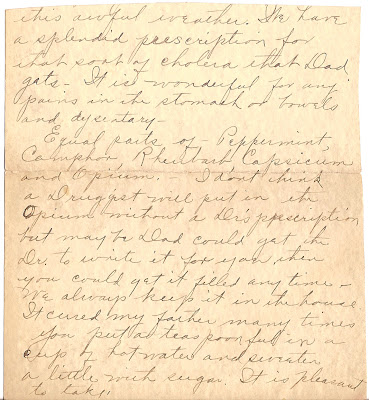 this awful weather. We have
a splendid prescription for
that sort of cholera that Dad
gets - It is wonderful for any
pains in the stomach or bowels
and dysentary -
Equal parts of - Peppermint,
Camphor Rheubarb Capsicum
and Opium. - I dont think
a Druggst will put in the
Opium without a Dr's prescription
but may be Dad could get the
Dr. to write it for you then
you could get it filled any time -
We always keep it in the house
It cured my father many times
you put a teaspoonful in a
cup of hot water and sweeten
a little with sugar. It is pleasant
to take.